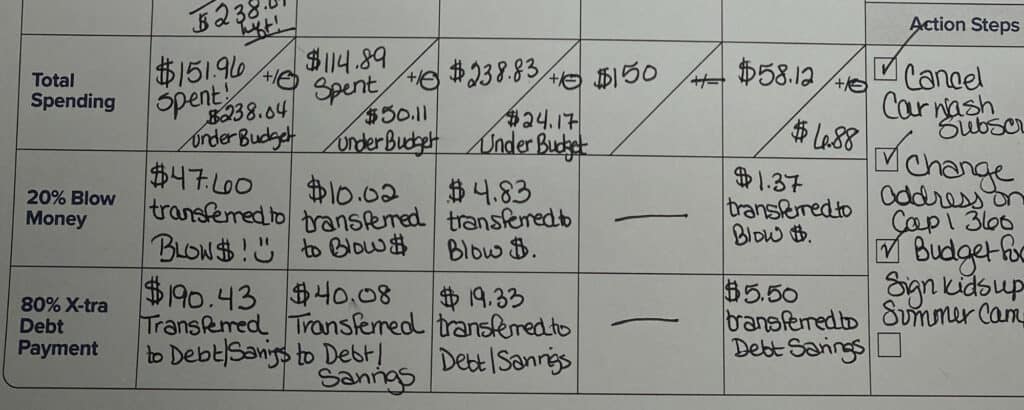 $238.01
left!
Action Steps
Total
Spending
$151.96 +/-
Spent!
$238.04
Under Budget
$114.89 +/-
Spent
$50.11
Under Budget
$238.83 +/-
$24.17
Under Budget
$150 +/-
$58.12 +/-
$6.88
Cancel
Car wash
Subscr
Change
address on
Cap 1 360
Budget for
Sign kids up
Summer Cam
20% Blow
Money
$47.60
transferred to
BLOW $!
$10.02
transferred
to Blow $
$4.83
transferred to
Blow $.
$1.37
transferred to
Blow $.
80% X-tra
Debt
Payment
$190.43
Transferred
to Debt/Savings
$40.08
Transferred
to Debt/
Savings
$19.33
transferred to
Debt/Savings
$5.50
transferred to
Debt Savings